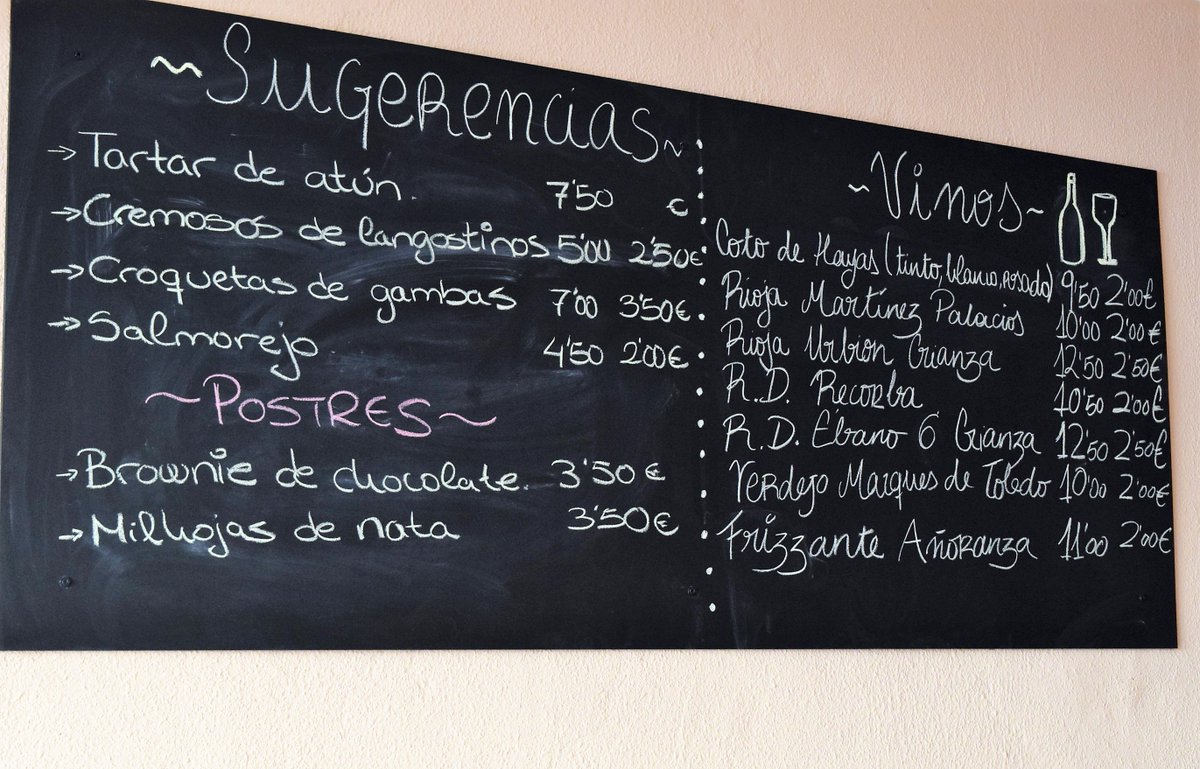 ~Sugerencias~
→Tartar de atún. 7'50 €
→Cremosos de langostinos 5'00 2'50€
→Croquetas de gambas 7'00 3'50€
→Salmorejo 4'50 2'00€
~Postres~
→Brownie de chocolate. 3'50€
→Milhojas de nata 3'50€
~Vinos~
Coto de Hayas (tinto, blanco, rosado) 9'50 2'00€
Rioja Martínez Palacios 10'00 2'00€
Rioja Urbion Crianza 12'50 2'50€
R.D. Recorba 10'50 2'00€
R.D. Ébano 6 Crianza 12'50 2'50€
Verdejo Marques de Toledo 10'00 2'00€
Frizzante Añoranza 11'00 2'00€